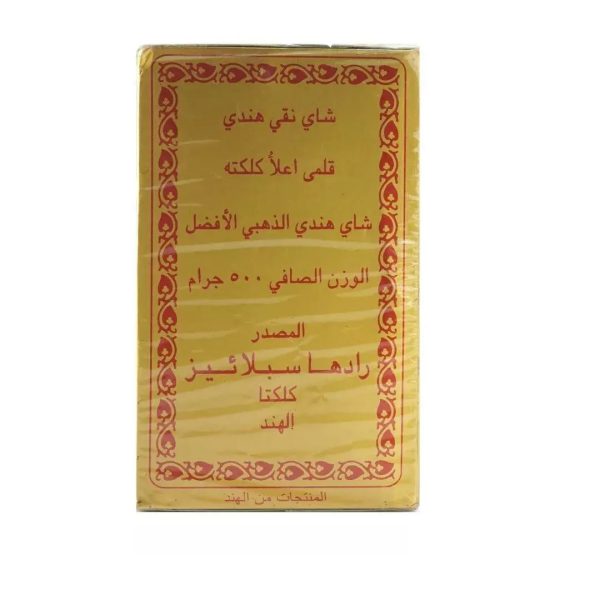 شاي نقي هندي
قلمى اعلاُ كلكته
شاي هندي الذهبي الأفضل
الوزن الصافي ٥٠٠ جرام
المصدر
رادها سبلائيز
كلكتا
الهند
المنتجات من الهند